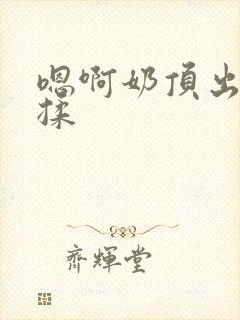 嗯啊奶頂出
揉
齊輝堂